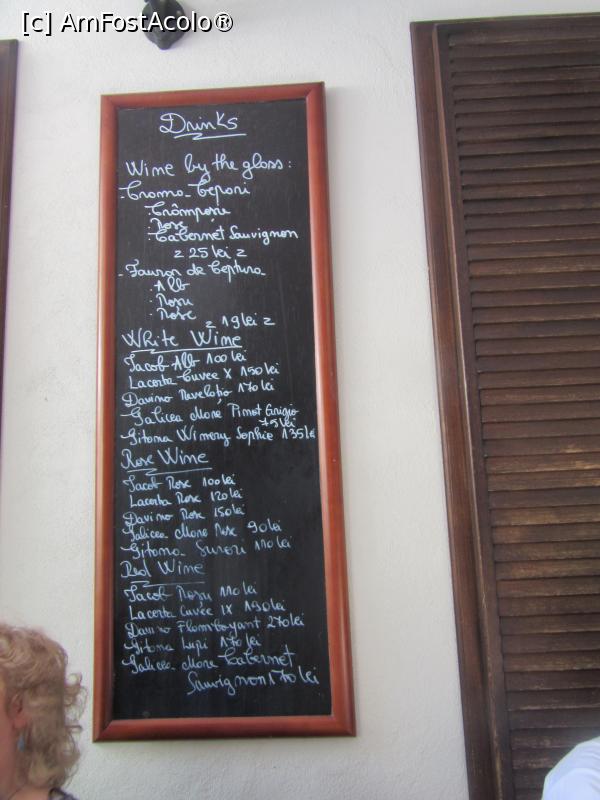 [c] AmFostAcolo®
Drinks
Wine by the glass:
- Crama Ceptura
Crâmpoșie
Rose
Cabernet Sauvignon
= 25 lei =
- Tauror de Ceptura
Alb
Rosu
Rose
= 19 lei =
White Wine
Iacob Alb 100 lei
Lacerta Cuvee X 150 lei
Davino Revelatio 170 lei
Galicea Mare Pinot Grigio
79 lei
Gitana Winery Sophie 135 lei
Rose Wine
Iacob Rose 100 lei
Lacerta Rose 120 lei
Davino Rose 150 lei
Galicea Mare Rose 90 lei
Gitana 110 lei
Red Wine
Iacob Rosu 110 lei
Lacerta Cuvée IX 190 lei
Davino Flamboyant 270 lei
Gitana Lupi 170 lei
Galicea Mare Cabernet
Sauvignon 170 lei